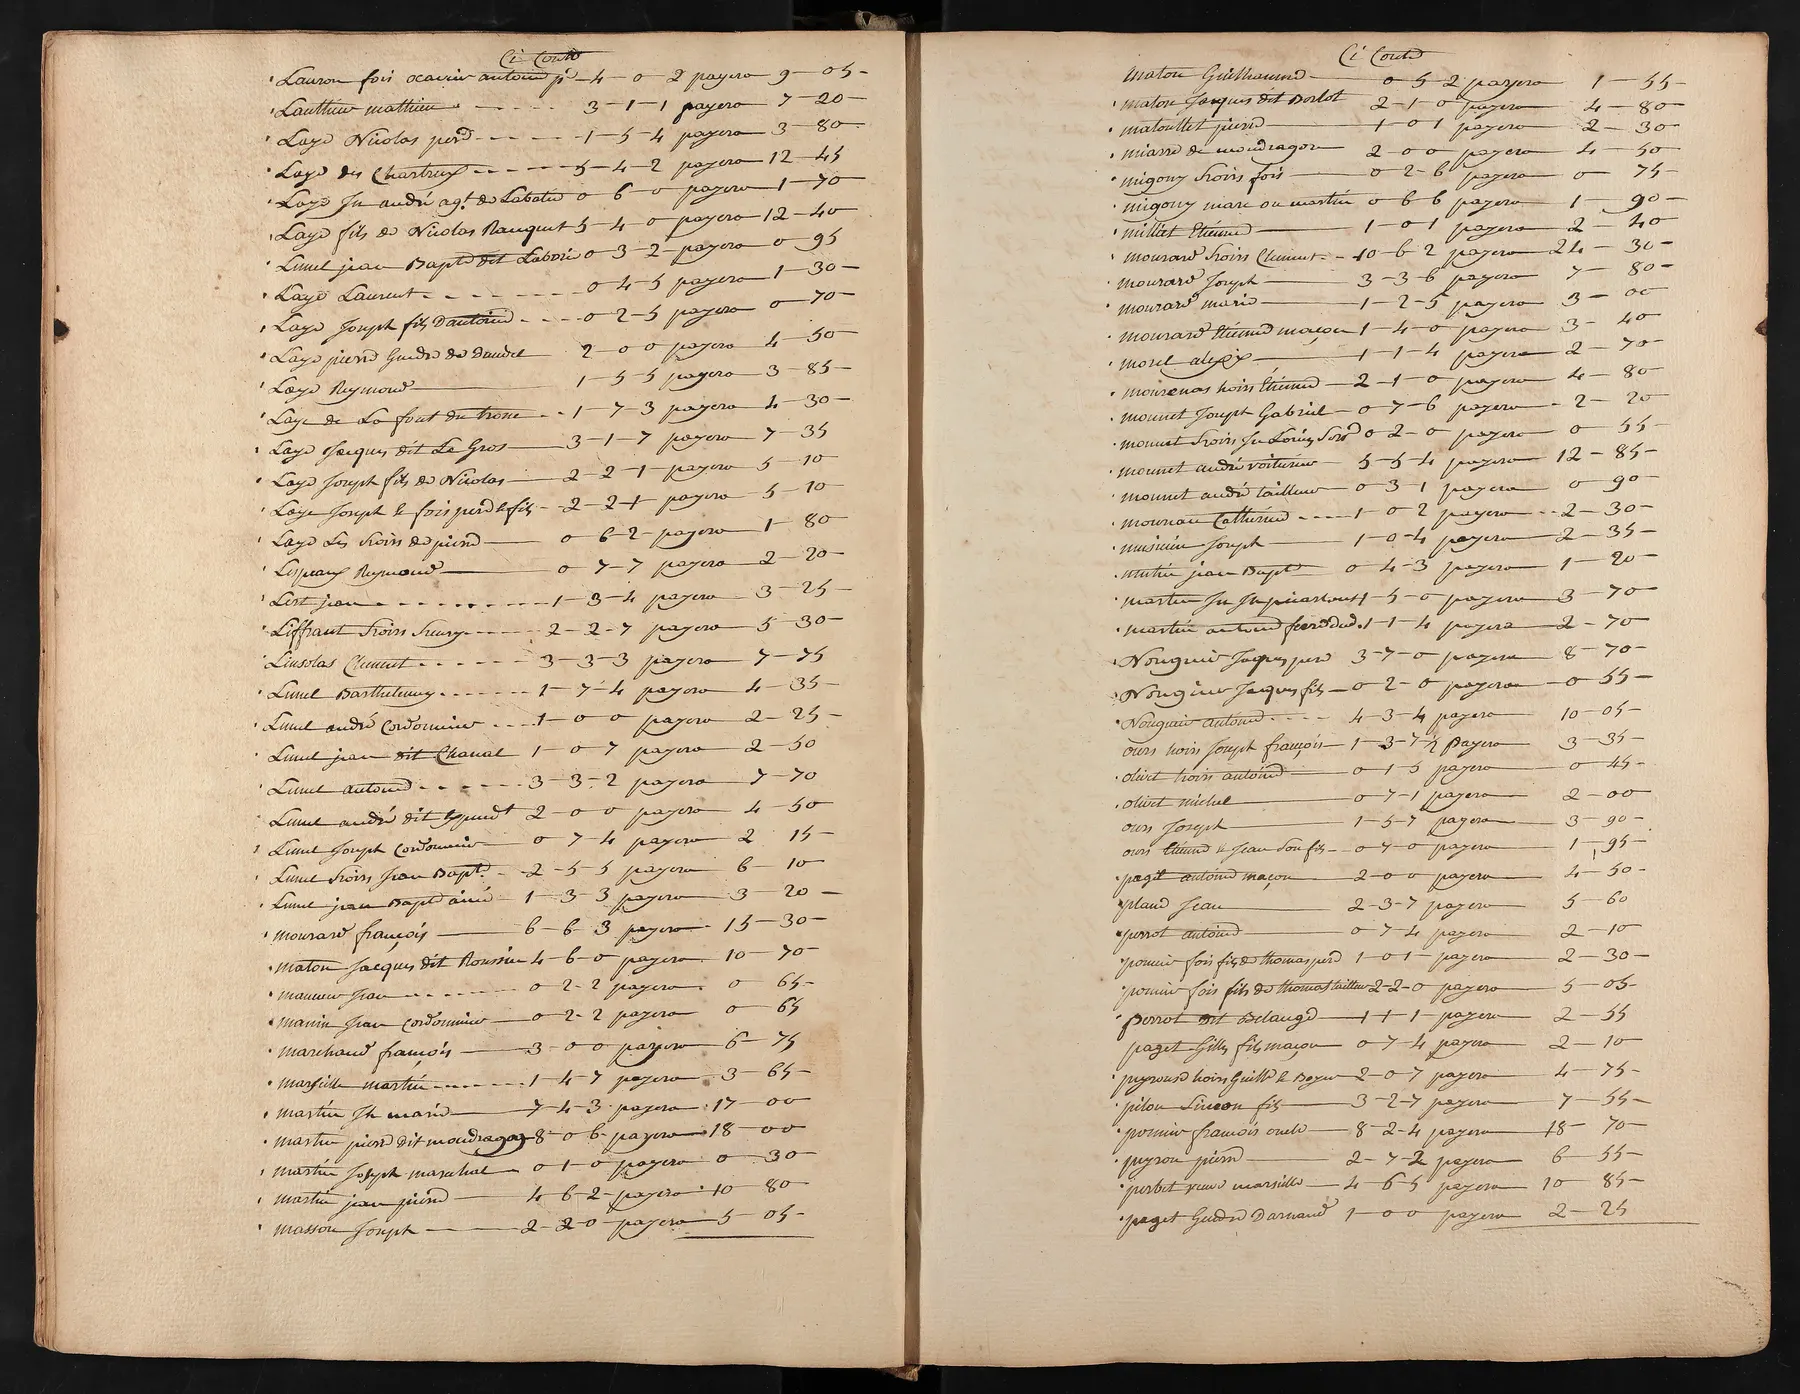 Ci Contre
Lauron fois xavier antoine pd 4 - 0 2 payera 9 - 05 -
Lauthier mathieu 3 - 1 - 1 payera 7 - 20 -
Laye Nicolas pere 1 - 5 - 4 payera 3 - 80 -
Laye des Chartreux 5 - 4 - 2 payera 12 - 45
Laye Jn andré agt de Labatie 0 6 - 0 payera 1 - 70
Laye fils de Nicolas Rauquet 5 - 4 - 0 payera 12 - 40
Limel jean Bapte dit Laborie 0 3 - 2 payera 0 - 95
Laye Laurent 0 - 4 - 5 payera 1 - 30 -
Laye Joseph fils d'antoine 0 2 - 5 payera 0 - 70
Laye pierre Gendre de daudel 2 - 0 0 payera 4 - 50
Laye Reymond 1 - 5 5 payera 3 - 85 -
Laye de La font du trone 1 - 7 - 3 payera 4 - 30 -
Laye Jacques dit Le Gros 3 - 1 - 7 payera 7 - 35
Laye Joseph fils de Nicolas 2 - 2 - 1 payera 5 - 10
Laye Joseph le fois pere & fils 2 - 2 - 1 payera 5 - 10
Laye Les hoirs de pierre 0 6 - 2 payera 1 - 80
Reymond 0 7 - 7 payera 2 - 20 -
List jean 1 - 3 - 4 payera 3 - 25 -
Liffraut hoirs 2 - 2 - 7 payera 5 - 30 -
Linsolas Clement 3 - 3 - 3 payera 7 - 75
Limel Barthelemy 1 - 7 - 4 payera 4 - 35 -
Limel andré Cordonnier 1 - 0 0 payera 2 - 25 -
Limel jean dit Chanal 1 - 0 7 payera 2 - 50
Limel antoine 3 - 3 - 2 payera 7 - 70
Limel andré dit 2 - 0 - 0 payera 4 - 50
Limel Joseph Cordonnier 0 7 - 4 payera 2 15 -
Limel hoirs Jean Bapte 2 - 5 5 payera 6 10
Limel jean Bapte ainé 1 - 3 - 3 payera 3 - 20 -
mourard françois 6 - 6 - 3 payera 15 - 30 -
maton Jacques dit Roussin 4 - 6 - 0 payera 10 - 70
Jean 0 2 - 2 payera 0 65 -
manin Jean Cordonnier 0 2 - 2 payera 0 65
marchand françois 3 - 0 0 payera 6 - 75
marseille martin 1 - 4 - 7 payera 3 - 65 -
martin Jh marie 7 - 4 - 3 payera 17 - 00
martin pierre dit mondragon 8 - 0 6 - payera 18 - 00
martin Joseph marechal 0 1 - 0 payera 0 - 30
martin jean pierre 4 6 - 2 - payera 10 80
masson Joseph 2 - 2 0 payera 5 - 05 -
Ci Contre
maton Guilhaume 0 - 5 - 2 payera 1 - 55 -
maton Jacques dit Borlot 2 - 1 - 0 payera 4 - 80 -
matoullet pierre 1 - 0 1 payera 2 - 30
miasse de mondragon 2 - 0 0 payera 4 - 50
migony hoirs fois 0 - 2 - 6 payera 0 75 -
migony marc ou martin 0 6 6 payera 1 90 -
millet Etienne 1 - 0 1 payera 2 - 40
mourard hoirs Clement 10 - 6 - 2 payera 24 - 30 -
mourard Joseph 3 - 3 - 6 payera 7 - 80 -
mourard marie 1 - 2 - 5 payera 3 - 00
mourard Etienne maçon 1 - 4 - 0 payera 3 - 40
morel alexix 1 - 1 - 4 payera 2 - 70 -
mourenas hoirs Etienne 2 - 1 - 0 payera 4 - 80
monnet Joseph Gabriel 0 - 7 - 6 payera 2 - 20
monnet hoirs Jn Louis 0 - 2 - 0 payera 0 55 -
monnet andré voiturier 5 - 5 - 4 payera 12 - 85 -
monnet andré tailleur 0 - 3 - 1 payera 0 90 -
mournau Catherine 1 - 0 2 payera 2 - 30 -
Joseph 1 - 0 - 4 payera 2 - 35 -
jean Bapte 0 - 4 - 3 payera 1 - 20
martin Jn Jh 1 - 5 - 0 payera 3 - 70
martin antoine 1 - 1 - 4 payera 2 - 70
Nouguier Jacques pere 3 - 7 - 0 payera 8 - 70 -
Nouguier Jacques fils 0 - 2 - 0 payera 0 55 -
Nouguier antoine 4 - 3 - 4 payera 10 - 05 -
ours hoirs Joseph françois 1 - 3 - 7 - ½ Payera 3 - 35 -
olivet hoirs antoine 0 - 1 - 5 payera 0 45 -
olivet michel 0 - 7 - 1 payera 2 - 00
ours Joseph 1 - 5 - 7 payera 3 - 90 -
ours Etienne & Jean Son fils 0 - 7 - 0 payera 1 - 95 -
paget antoine maçon 2 - 0 0 payera 4 - 50 -
pland Jean 2 - 3 - 7 payera 5 - 60
perrot antoine 0 7 - 4 payera 2 - 10
pommier fois fils de thomas pere 1 - 0 1 - payera 2 - 30 -
pommier fois fils de thomas tailleur 2 - 2 - 0 payera 5 - 05 -
Perrot dit Belange 1 - 1 - 1 payera 2 - 55
paget Gilles fils maçon 0 7 - 4 payera 2 - 10
peyrouse hoirs Guille 2 - 0 7 payera 4 - 75 -
pilon Simeon fils 3 - 2 - 7 payera 7 - 55 -
pommier françois oncle 8 - 2 - 4 payera 18 - 70
peyron pierre 2 - 7 - 2 payera 6 - 55 -
perbet veuve marseille 4 - 6 - 5 payera 10 - 85 -
paget Gendre Darnaud 1 - 0 0 payera 2 - 25